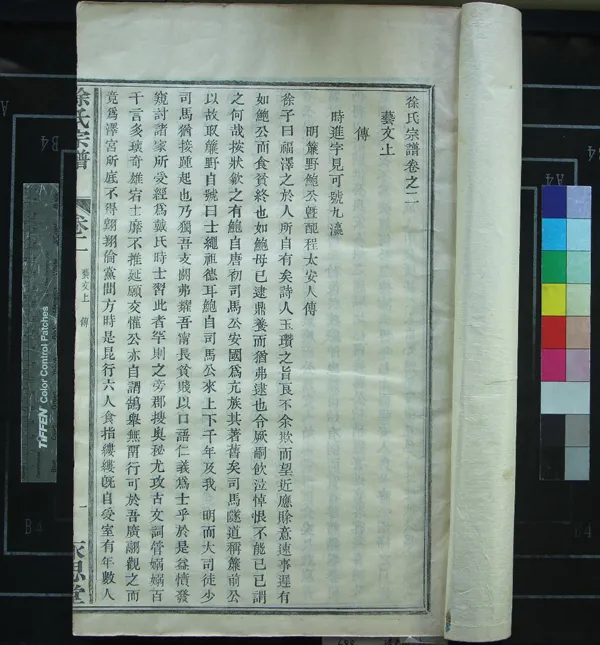 徐氏宗譜卷之二
藝文上
傳
時進字見可號九瀛
明簾野鮑公曁配程太安人傳
徐子曰福澤之於人所自有矣詩人玉瓚之旨良不余欺而望近應賒意速事遲有
如鮑公而食貧終也如鮑母已逮鼎養而猶弗逮也令厥嗣飲泣悼恨不能已已謂
之何哉按狀歙之有鮑自唐初司馬公安國爲尤族其著舊矣司馬隧道稱簾前公
以故取簾野自號曰士繩祖德耳鮑自司馬公來上下千年及我 明而大司徒少
司馬猶接踵起也乃獨吾支闕弗耀吾甯長貧賤以口語仁義爲士乎於是益憤發
窺討諸家所受經爲戴氏時士習此者罕則之旁郡搜奧秘尤攻古文詞管
言多瓌奇雄宕士靡不推延願交懽公亦自謂鵠舉無留行可於吾廣翮觀之而
竟爲澤宮所底不得翺翔偷黨間方時是昆行六人食指縷縷旣自受室有年數人
徐氏宗譜
卷二
藝文上 傳
一